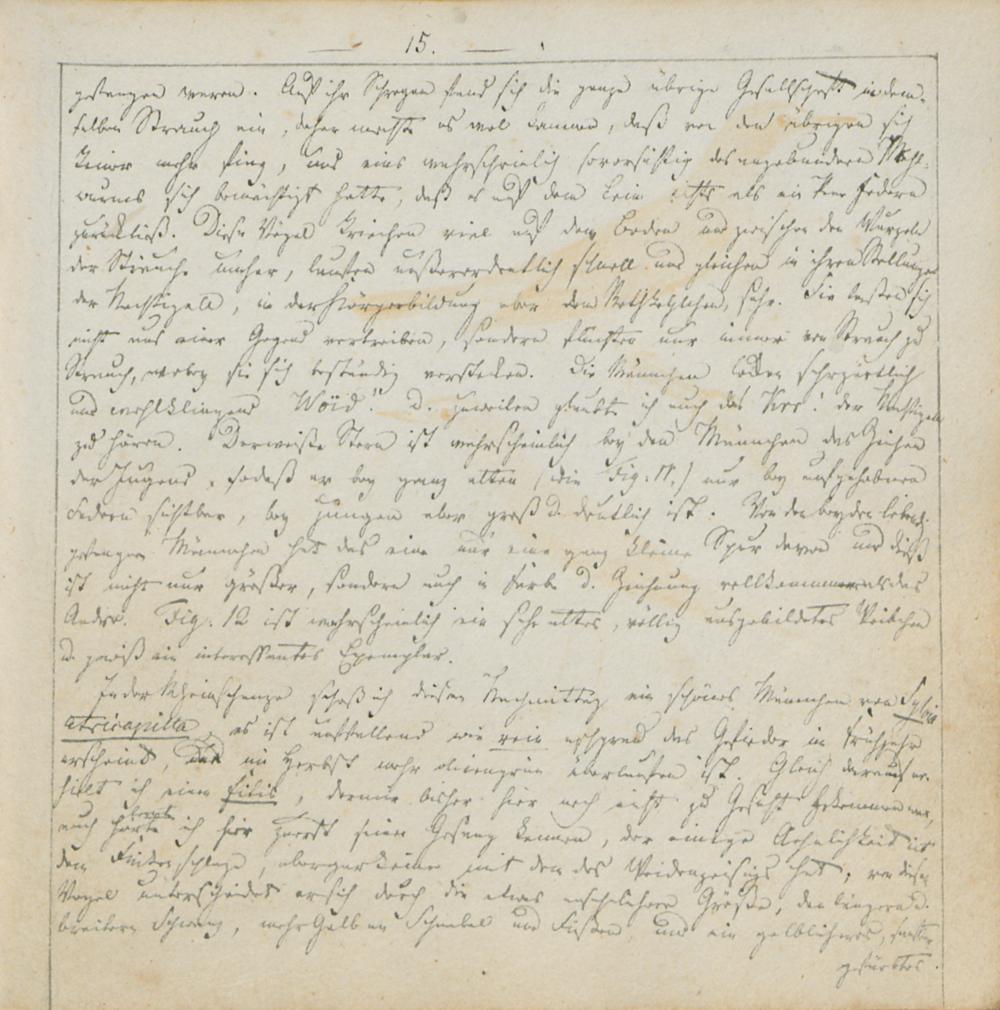 15.
gefangen waren. Auf ihr Schreyen fand sich die ganze übrige Gesellschaft in dem-
selben Strauch ein, daher mochte es wol kommen, daß von den übrigen sich
keiner mehr fing, und eins wahrscheinlich so vorsichtig des angebundenen Mehl-
wurms sich bemächtigt hatte, daß es auf dem Leim nichts als ein Paar Federn
zurückließ. Diese Vögel kriechen viel auf dem Boden und zwischen den Wurzeln
der Sträuche umher, laufen außerordentlich schnell und gleichen in ihren Stellungen
der Nachtigall, in der Körperbildung aber dem Rothkehlchen, sehr. Sie lassen sich
nicht aus einer Gegend vertreiben, sondern flüchten nur immer von Strauch zu
Strauch, wobey sie sich beständig verstecken. Die Männchen locken sehr zärtlich
und wohlklingend Woid! d. zuweilen glaubte ich auch das Krr! der Nachtigall
zu hören. Der weiße Stern ist wahrscheinlich bey den Männchen das Zeichen
der Jugend, so daß er bey ganz alten (wie Fig. 11.) nur bey aufgehobenen
Federn sichtbar, bey jungen aber groß d. deutlich ist. Von den beyden lebendig
gefangen Männchen hat das eine nur eine ganz kleine Spur davon und dieß
ist nicht nur größer, sondern auch in Farbe d. Zeichnung vollkommener als das
Andre. Fig. 12 ist wahrscheinlich ein sehr altes, völlig ausgebildetes Weibchen
d. gewiß ein interessantes Exemplar.
In der Rheinschanze schoß ich diesen Nachmittag ein schönes Männchen von Sylvia
atricapilla, es ist auffallend wie rein aschgrau das Gefieder im Frühjahr
erscheint, das im Herbst mehr olivengrün überlaufen ist. Gleich darauf er-
hielt ich einen Fitis, der mir bisher hier noch nicht zu Gesicht gekommen war,
auch lernte ich hier zuerst seinen Gesang kennen, der einige Aehnlichkeit mit
dem Finkenschlage, aber gar keine mit dem des Weidenzeisigs hat, von diesem
Vogel unterscheidet er sich durch die etwas ansehnlichere Größe, den längern d.
breitern Schwanz, mehr Gelb an Schnabel und Füßen und ein gelblicheres,
gefärbtes